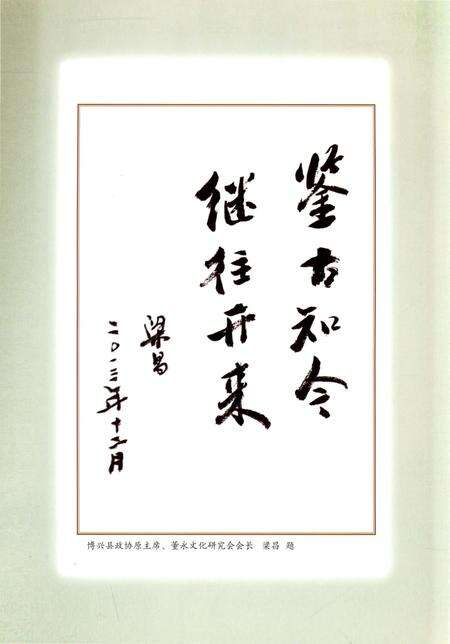 鉴古知今
继往开来
梁昌
二〇一三年十二月
博兴县政协原主席、董永文化研究会会长 梁昌 题